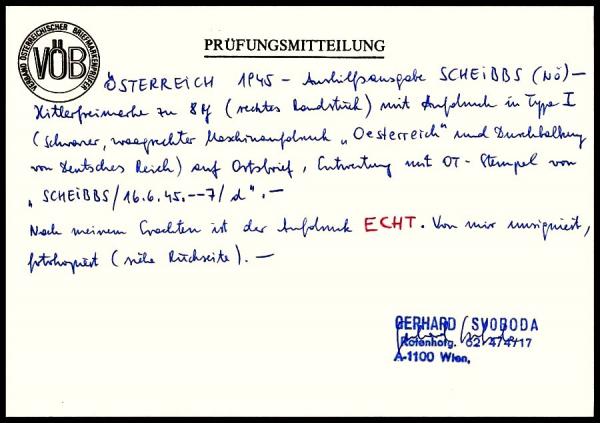 VERBAND ÖSTERREICHISCHER BRIEFMARKENPRÜFER
VÖB
PRÜFUNGSMITTEILUNG
ÖSTERREICH 1945 – Aushilfsausgabe SCHEIBBS (NÖ) –
Hitlerfreimarke zu 8 Pf (rechtes Randstück) mit Aufdruck in Type I
(schwarzer, waagrechter Maschinaufdruck „Oesterreich" und Durchbalkung
von Deutsches Reich) auf Ortsbrief, Entwertung mit OT-Stempel von
„SCHEIBBS/16.6.45.--7/d". –
Nach meinem Erachten ist der Aufdruck ECHT. Von mir unsigniert,
fotokopiert (siehe Rückseite). –
GERHARD SVOBODA
Rotenhofg. 62-474/17
A-1100 Wien,